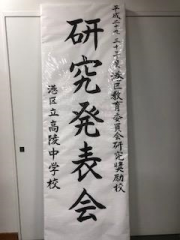 平成二十九・三十年度港区教育委員会研究奨励校
研究発表会
港区立高陵中学校